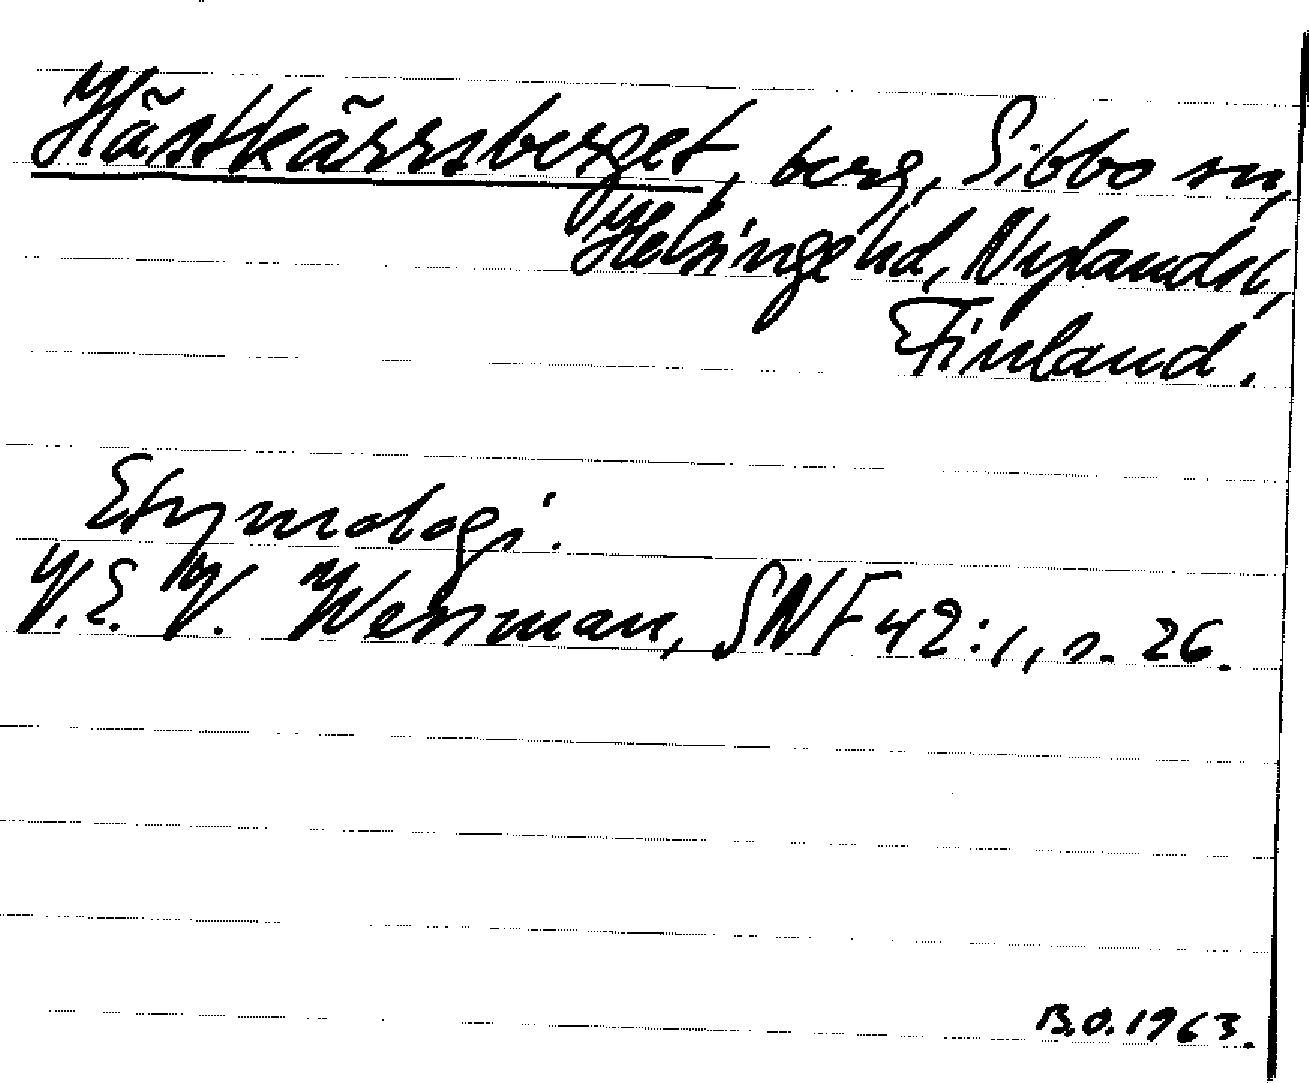 Hästkärrsberget, berg, Sibbo sn,
Helsinge hd, Nylands l,
Finland.
Etymologi.
V.E.V. Wessman, SNF 42:1, s. 26.
B.O. 1963.